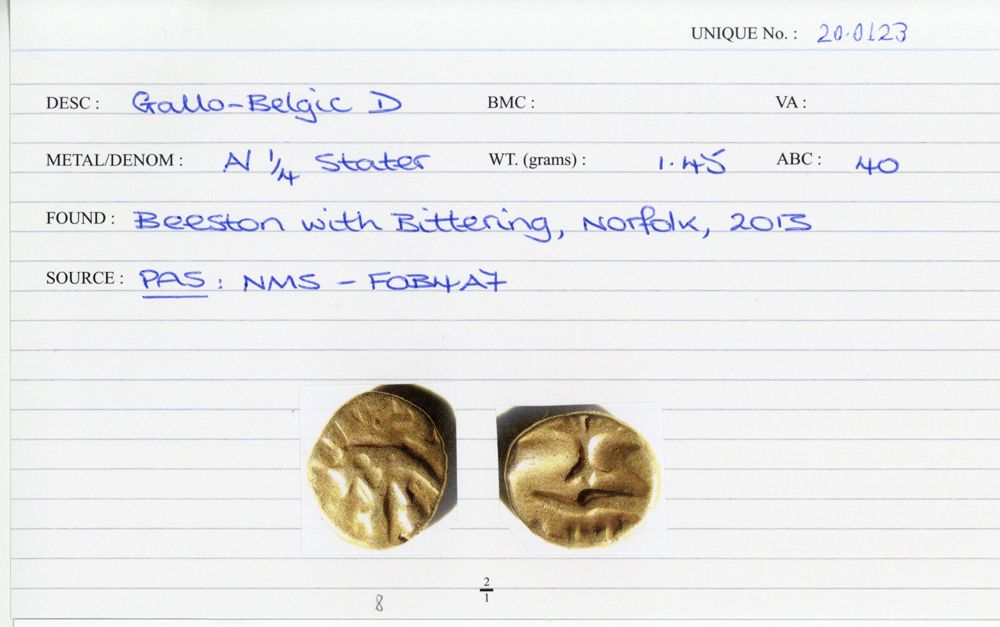 UNIQUE No. : 20.0123
DESC : Gallo-Belgic D BMC : VA :
METAL/DENOM : AV 1/4 Stater WT. (grams) : 1.45 ABC : 40
FOUND : Beeston with Bittering, Norfolk, 2013
SOURCE : PAS : NMS - F0B4A7
2/1
8